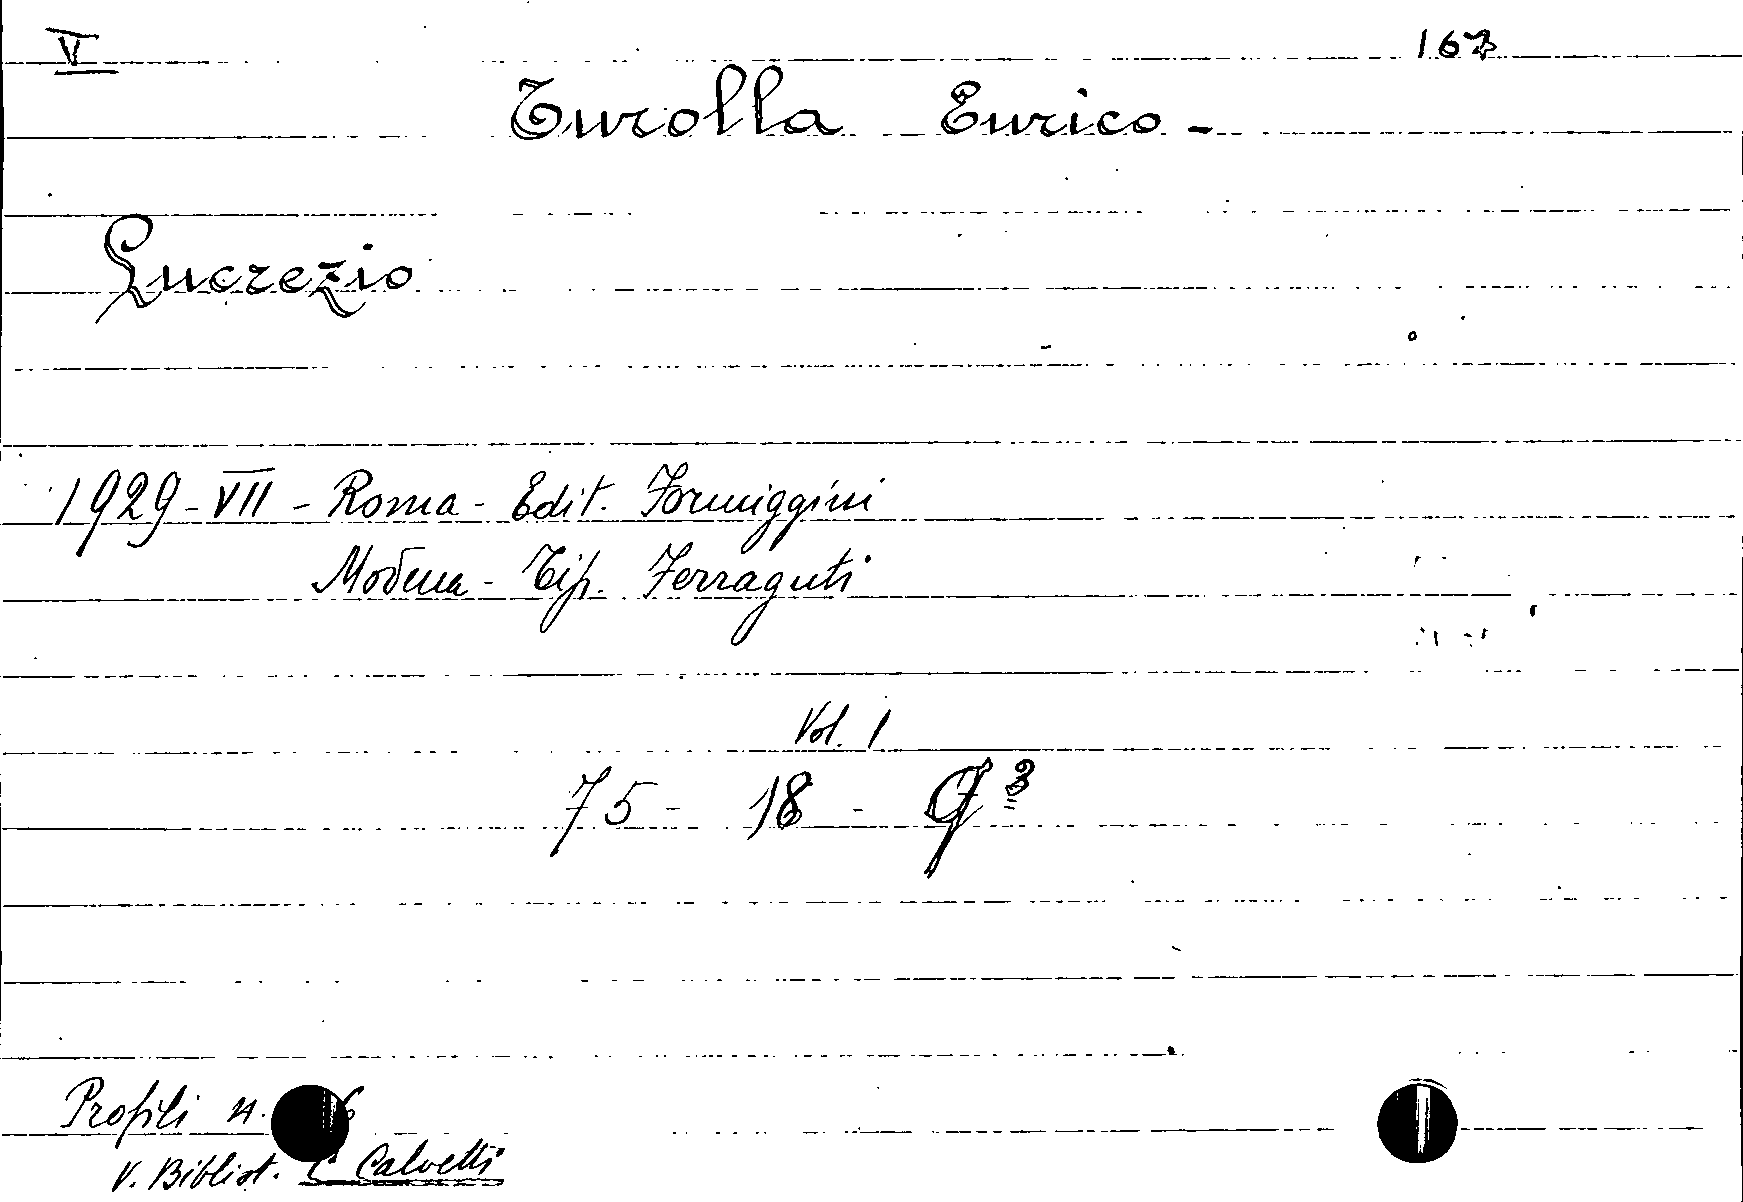 V 167
Turolla Enrico -
Lucrezio
1929 - VII - Roma - Edit. Formiggini
Modena - Tip. Ferraguti
Vol. 1
75 - 18 - G 3
Profili n.
V. Bibliot. Calvetti